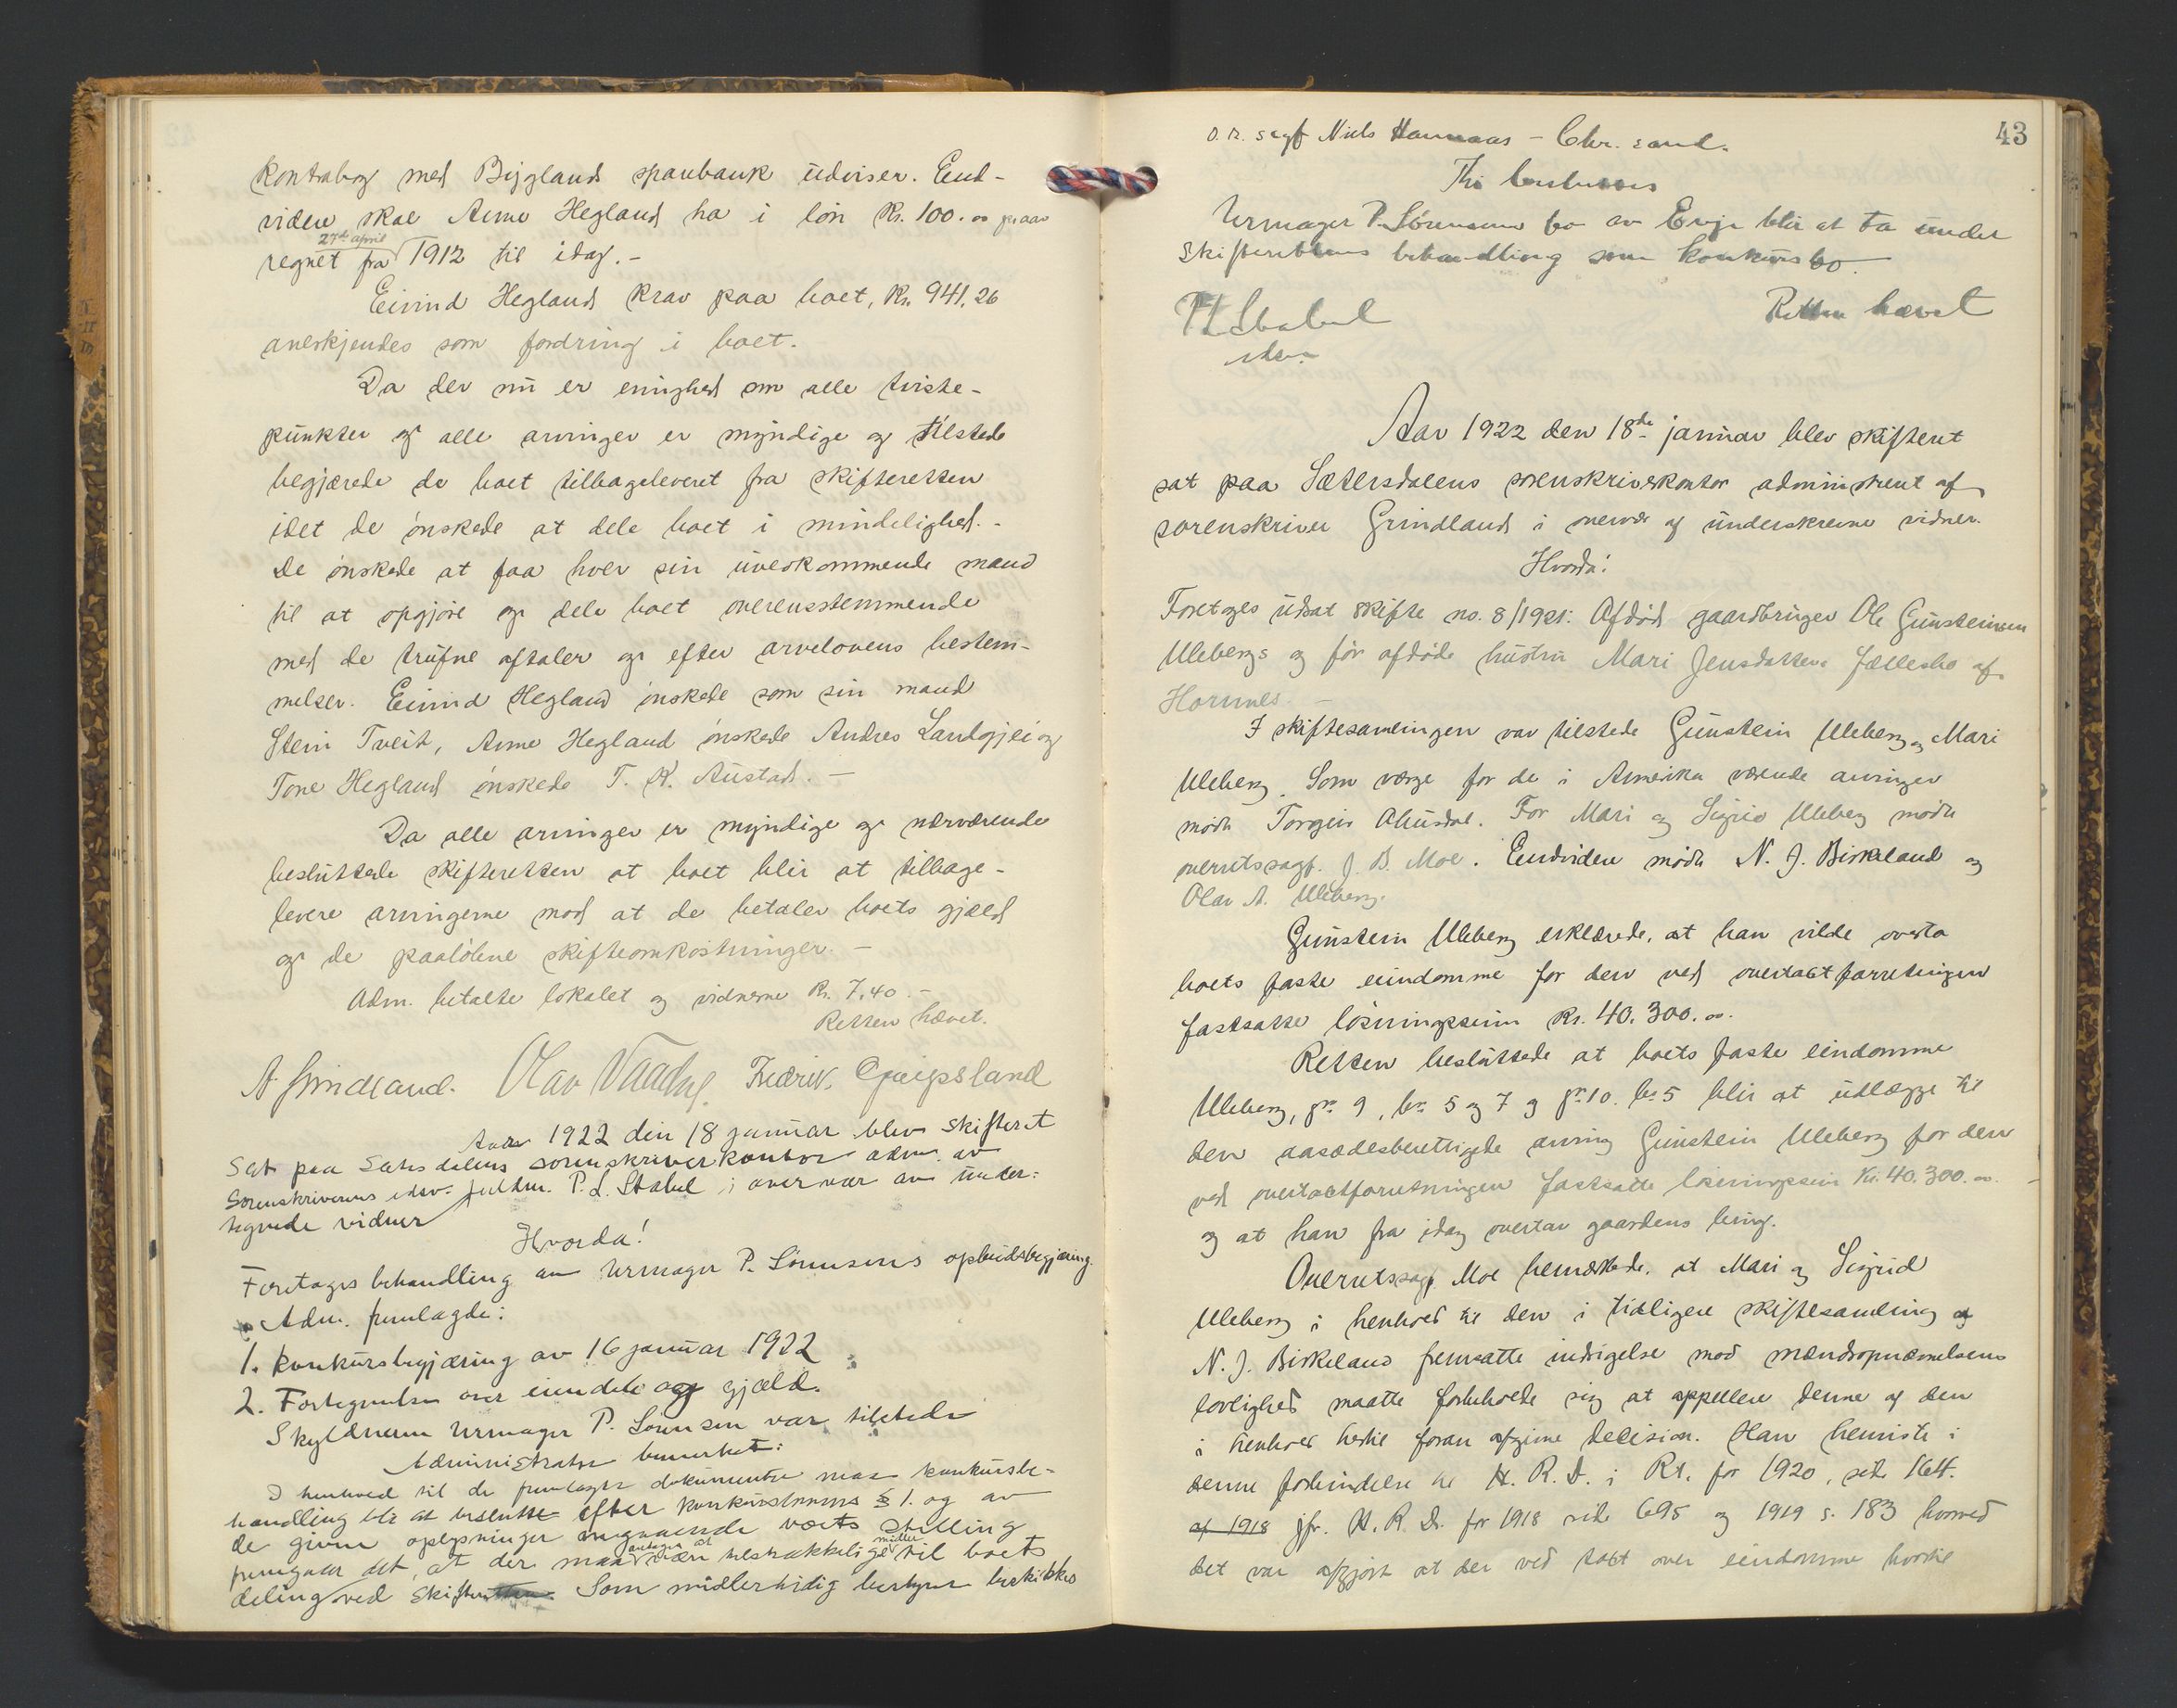 kontrabog med Bygland sparebank udviser. End-
videre skal Anne Hegland ha i løn Kr. 100.00 pr aar
27de april
regnet fra 1912 til idag.-
Eivind Hegland krav paa boet, Kr. 941,26
anerkjendes som fordring i boet.
Da der nu er enighed om alle tviste-
punkter og alle arvinger er myndige og tilstede
begjærede de boet tilbageleveret fra skifteretten
idet de ønskede at dele boet i mindelighed.-
De ønskede at faa hver sin uvedkommende mand
til at opgjøre og dele boet overensstemmende
med de trufne aftaler og efter arvelovens bestem-
melser. Eivind Hegland ønskede som sin mand
Stein Tveit, Anne Hegland ønskede Andres Landgjei og
Tone Hegland ønskede T. K. Austad. -
Da alle arvinger er myndige og nærværende
besluttede skifteretten at boet blir at tilbage-
levere arvingerne mod at de betaler boets gjæld
og de paaløbne skifteomkostninger. -
Adm. betalte lokalet og vidnerne Kr. 7,40. -
Retten hævet.
A Grindland. Olav Fredrik Gjeipsland
Aar 1922 den 18 januar blev skifteret
sat paa Sætersdalens sorenskriverkontor adm. av
Sorenskriverens edsv. fuldm. P. L. Stabel i overvær av under-
tegnede vidner
Hvorda!
Foretages behandling av Urmager P. Sørensens opbudsbegjæring.
Adm. fremlagde:
1. Konkursbegjæring av 16 januar 1922
2. Fortegnelse over eiendele og gjæld.
Skyldneren Urmager P. Sørensen var tilstede
Administrator bemerket:
I henhold til de fremlagte dokumenter maa konkursbe-
handling bli at beslutte efter konkurslovens § 1. og av
de givne oplysninger angaaende boets stilling
antages at midler
fremgaar det, at der maa være tilstrækkelige til boets
deling ved skifteretten. Som midlertidig bestyrer beskikkes
43
o.r. sagf Niels Hannaas - Chr. sand.
Thi besluttes
Urmager P. Sørensens bo av Evje blir at ta under
Skifterettens behandling som konkursbo.
Retten hævet
P L Stabel
edsv.
Aar 1922 den 18de januar blev skifteret
sat paa Sætersdalens sorenskriverkontor administreret af
sorenskriver Grindland i overvær af underskrevne vidner.
Hvorda:
Foretages utsat skifte no. 8/1921: Afdød gaardbruger Ole Gunsteinsen
Ulebergs og før afdøde hustru Mari Jensdatters fællesbo af
Hornnes. -
I skiftesamlingen var tilstede Gunstein Uleberg og Mari
Uleberg. Som værge for de i Amerika værende arvinger
mødte Torgeir Ahusdal. For Mari og Sigrid Uleberg mødte
overretssagf. J. B. Moe. Endvidere mødte N. J. Birkeland og
Olav A. Uleberg.
Gunstein Uleberg erklærede, at han vilde overta
boets faste eiendomme for den ved overtaktforretningen
fastsatte løsningssum Kr. 40.300.00.
Retten besluttede at boets faste eiendomme
Uleberg, gn 9, bn 5 og 7 og gn 10. bn 5 blir at udlægge til
den aasædesberettigede arving Gunstein Uleberg for den
ved overtaktforretningen fastsatte løsningssum Kr. 40.300.00.
og at han fra idag overtar gaardens brug.
Overretssagf. Moe bemærkede, at Mari og Sigrid
Uleberg i henhold til den i tidligere skiftesamling af
N. J. Birkeland fremsatte indsigelse mod mændsopnævnelsens
lovlighed maatte forbeholde sig at appellere denne og den
i henhold hertil foran afgivne decision. Han henviste i
denne forbindelse til H. R. D. i Rt. for 1920, side 164.
af 1918 jfr. H. R. D. for 1918 side 695 og 1919 s. 183 hvorved
det var afgjort at der ved takt over eiendomme hvortil